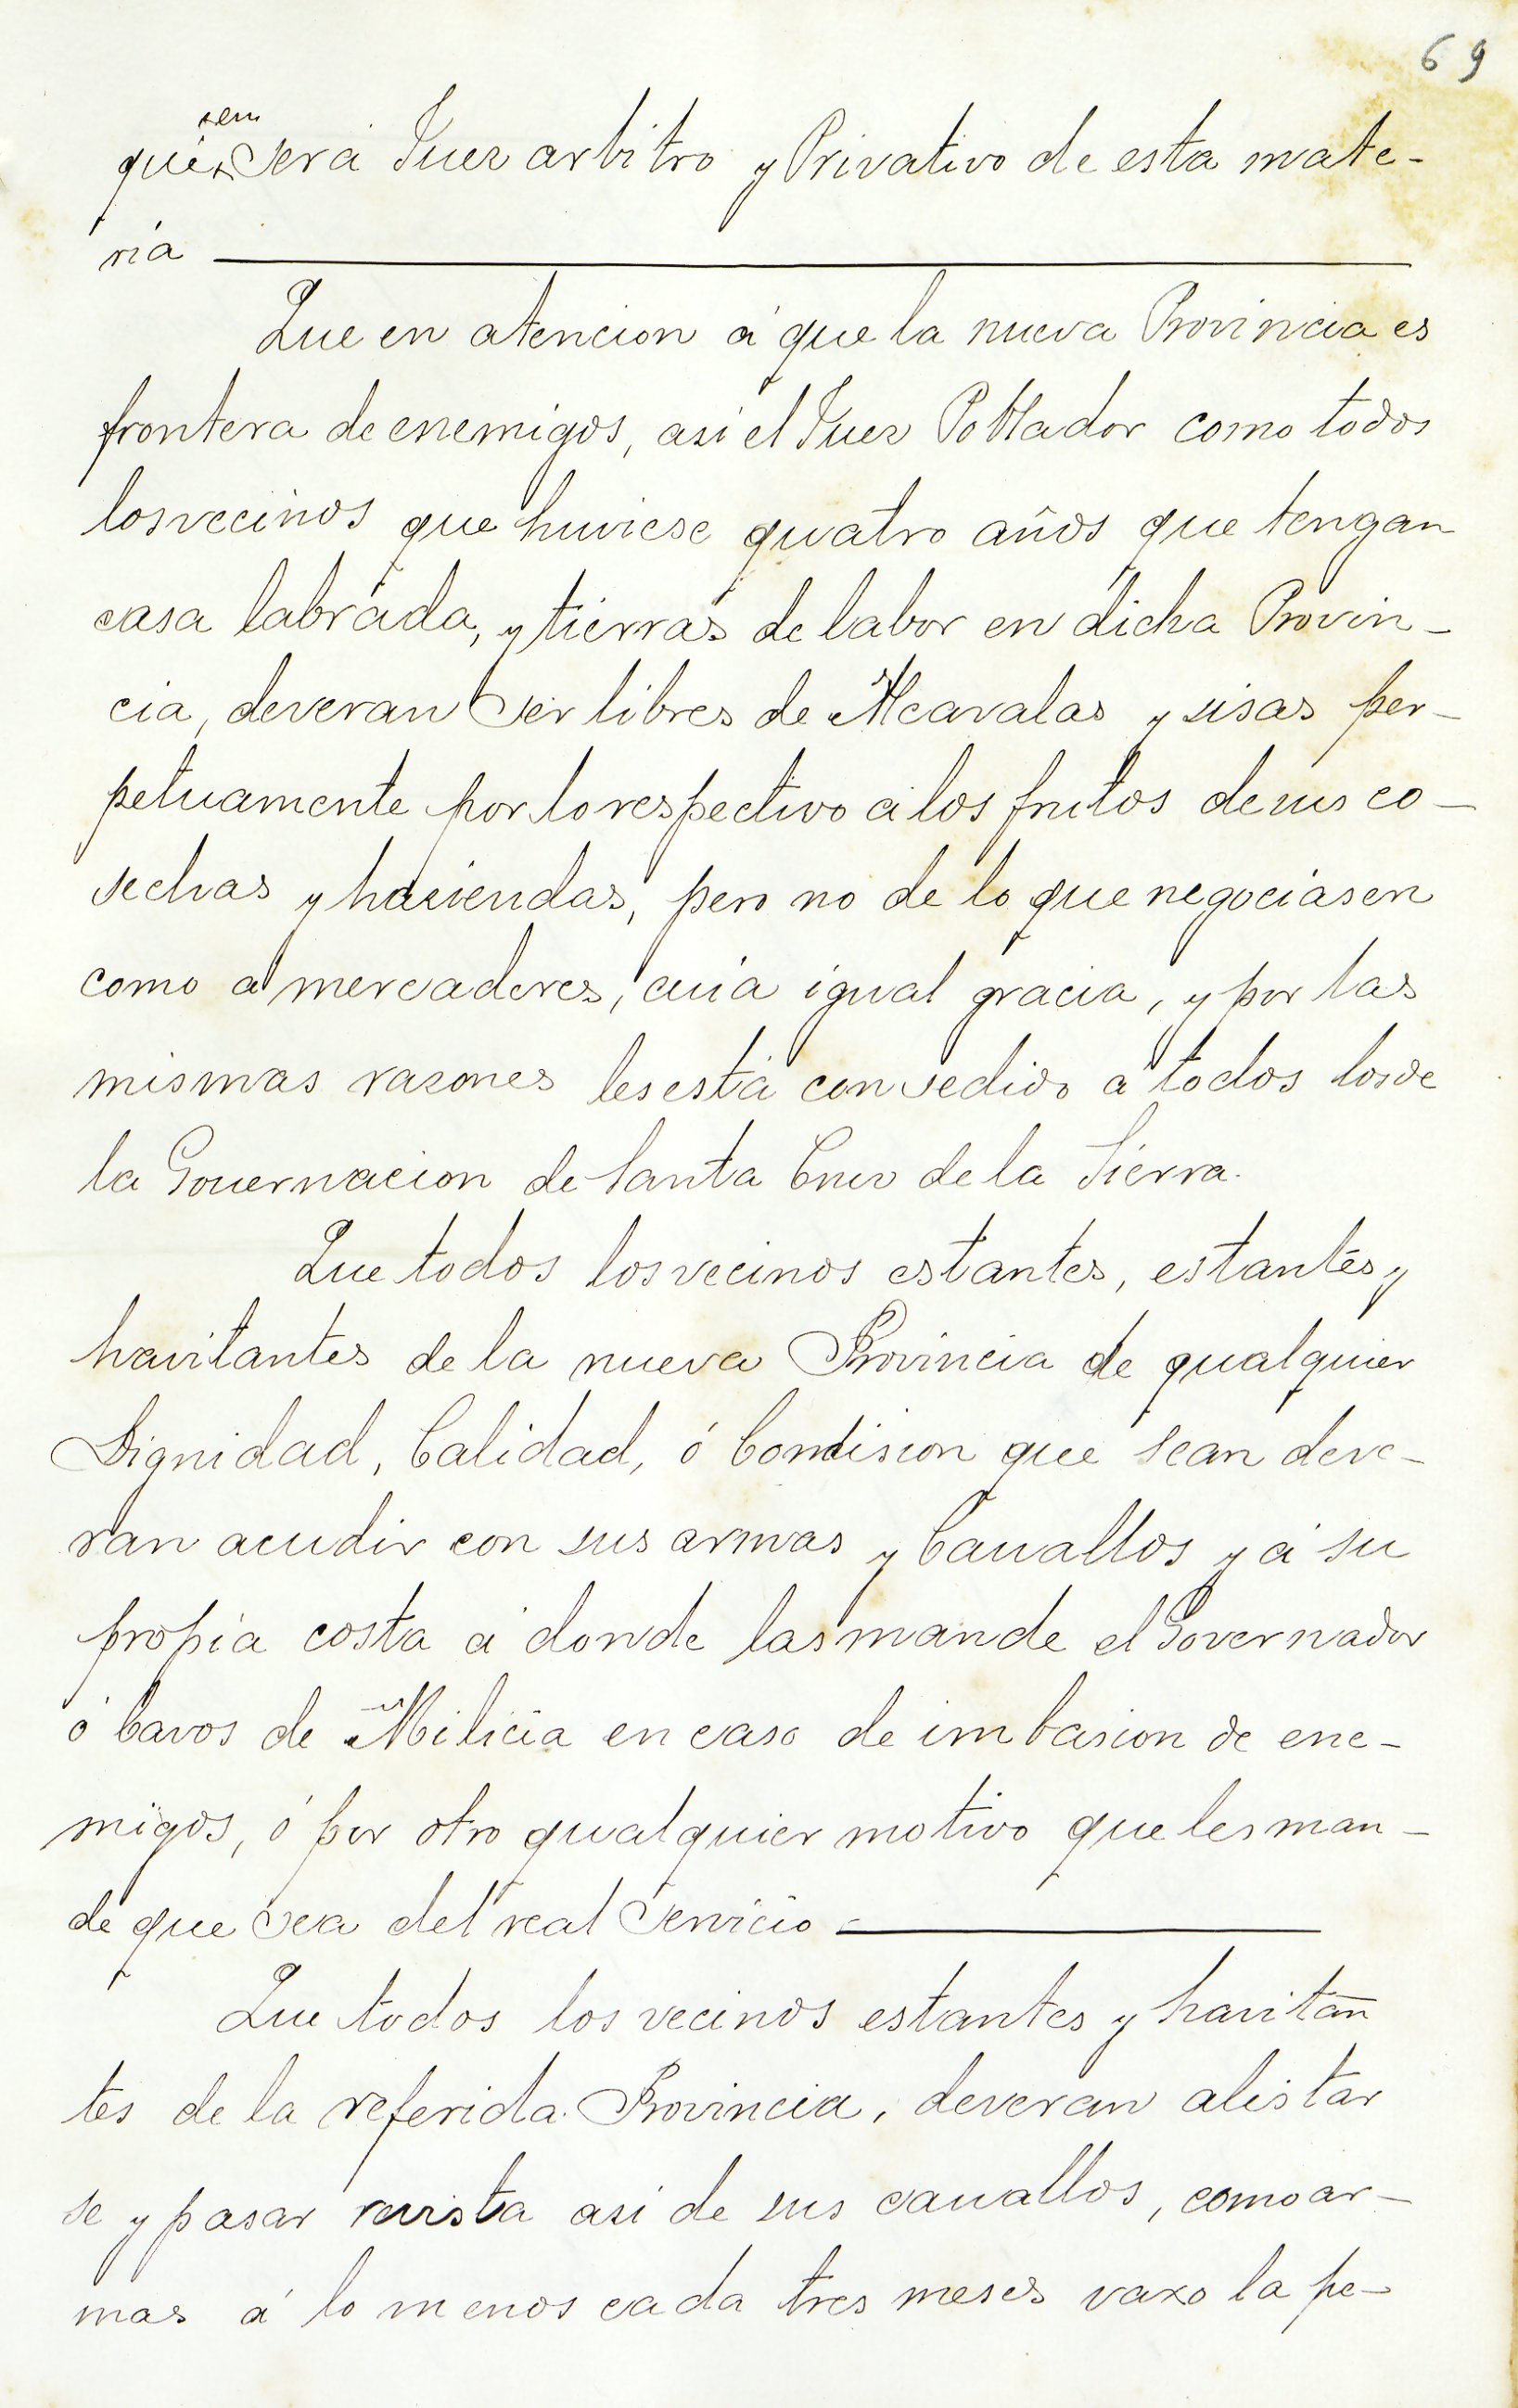 69
sem
que será Juez arbitro y Privativo de esta mate-
ria
Que en atencion á que la nueva Provincia es
frontera de enemigos, asi el Juez Poblador como todos
los vecinos que huviese quatro años que tengan
casa labrada, y tierras de labor en dicha Provin-
cia, deveran ser libres de Alcavalas y sisas per-
petuamente por lo respectivo á los frutos de sus co-
sechas y haciendas, pero no de lo que negociasen
como á mercaderes, cuia igual gracia, y por las
mismas razones les está consedido á todos los de
la Governacion de Santa Cruz de la Sierra.
Que todos los vecinos estantes, estantes y
havitantes de la nueva Provincia de qualquier
Dignidad, Calidad, ó Condision que sean deve-
ran acudir con sus armas y Cauallos y á su
propia costa á donde las mande el Governador
ó Cavos de Milicia en caso de imbasion de ene-
migos, ó por otro qualquier motivo que les man-
de que sea del real Servicio
Que todos los vecinos estantes y havitan
tes de la referida Provincia, deveran alistar
se y pasar revista asi de sus cauallos, como ar-
mas á lo menos cada tres meses vaxo la pe-